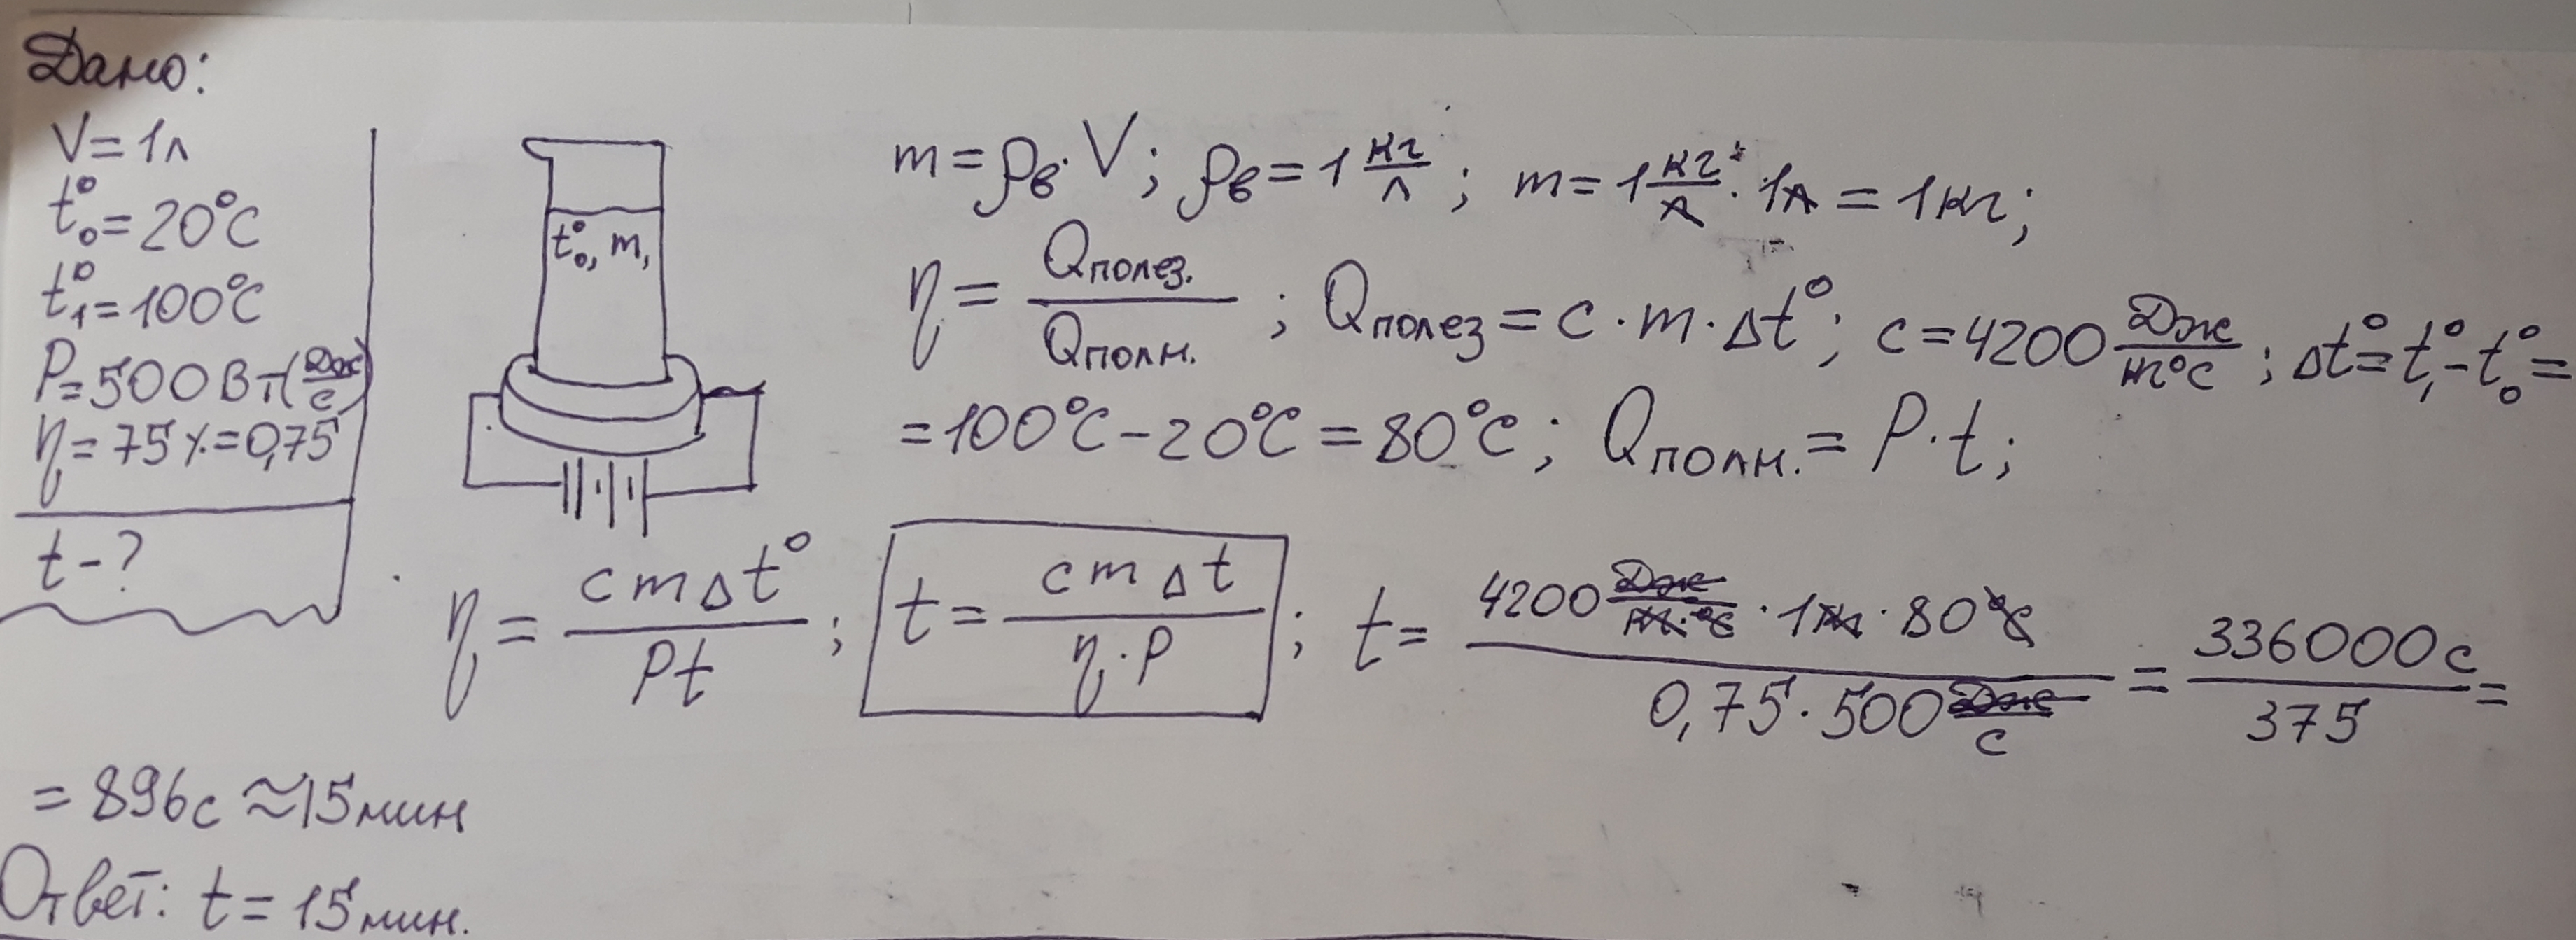 Дано:
V=1л
t°₀=20°C
t°₁=100°C
P=500Вт(Дж/с)
η=75%=0,75
t-?
t°₀, m,
m=ρв·V; ρв=1 кг/л; m=1 кг/л · 1л = 1кг;
η = Qполез./Qполн. ; Qполез = c·m·Δt°; c=4200 Дж/кг°C ; Δt°=t°₁-t°₀=
=100°C-20°C=80°C; Qполн.= P·t;
η = cmΔt°/Pt ; t = cmΔt/η·P ; t = 4200 Дж/кг·°C · 1кг · 80°C / 0,75·500 Дж/с = 336000с/375 =
= 896с ≈15мин
Ответ: t = 15мин.